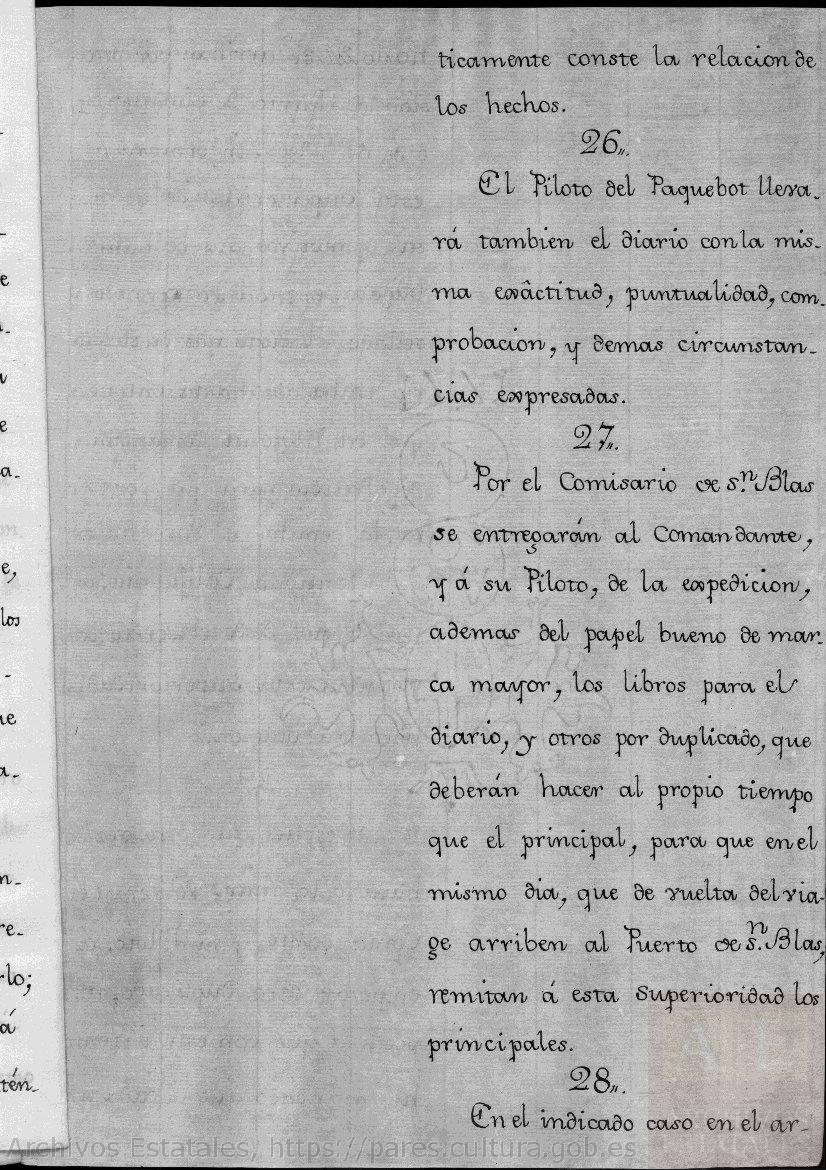 ticamente conste la relacion de
los hechos.
26.
El Piloto del Paquebot lleva-
rá tambien el diario con la mis-
ma exâctitud, puntualidad, com-
probacion, y demas circunstan-
cias expresadas.
27.
Por el Comisario de Sn. Blas
se entregarán al Comandante,
y á su Piloto, de la expedicion,
ademas del papel bueno de mar-
ca mayor, los libros para el
diario, y otros por duplicado, que
deberán hacer al propio tiempo
que el principal, para que en el
mismo dia, que de vuelta del via-
ge arriben al Puerto de Sn. Blas,
remitan á esta Superioridad los
principales.
28.
En el indicado caso en el ar-
Archivos Estatales, https://pares.cultura.gob.es